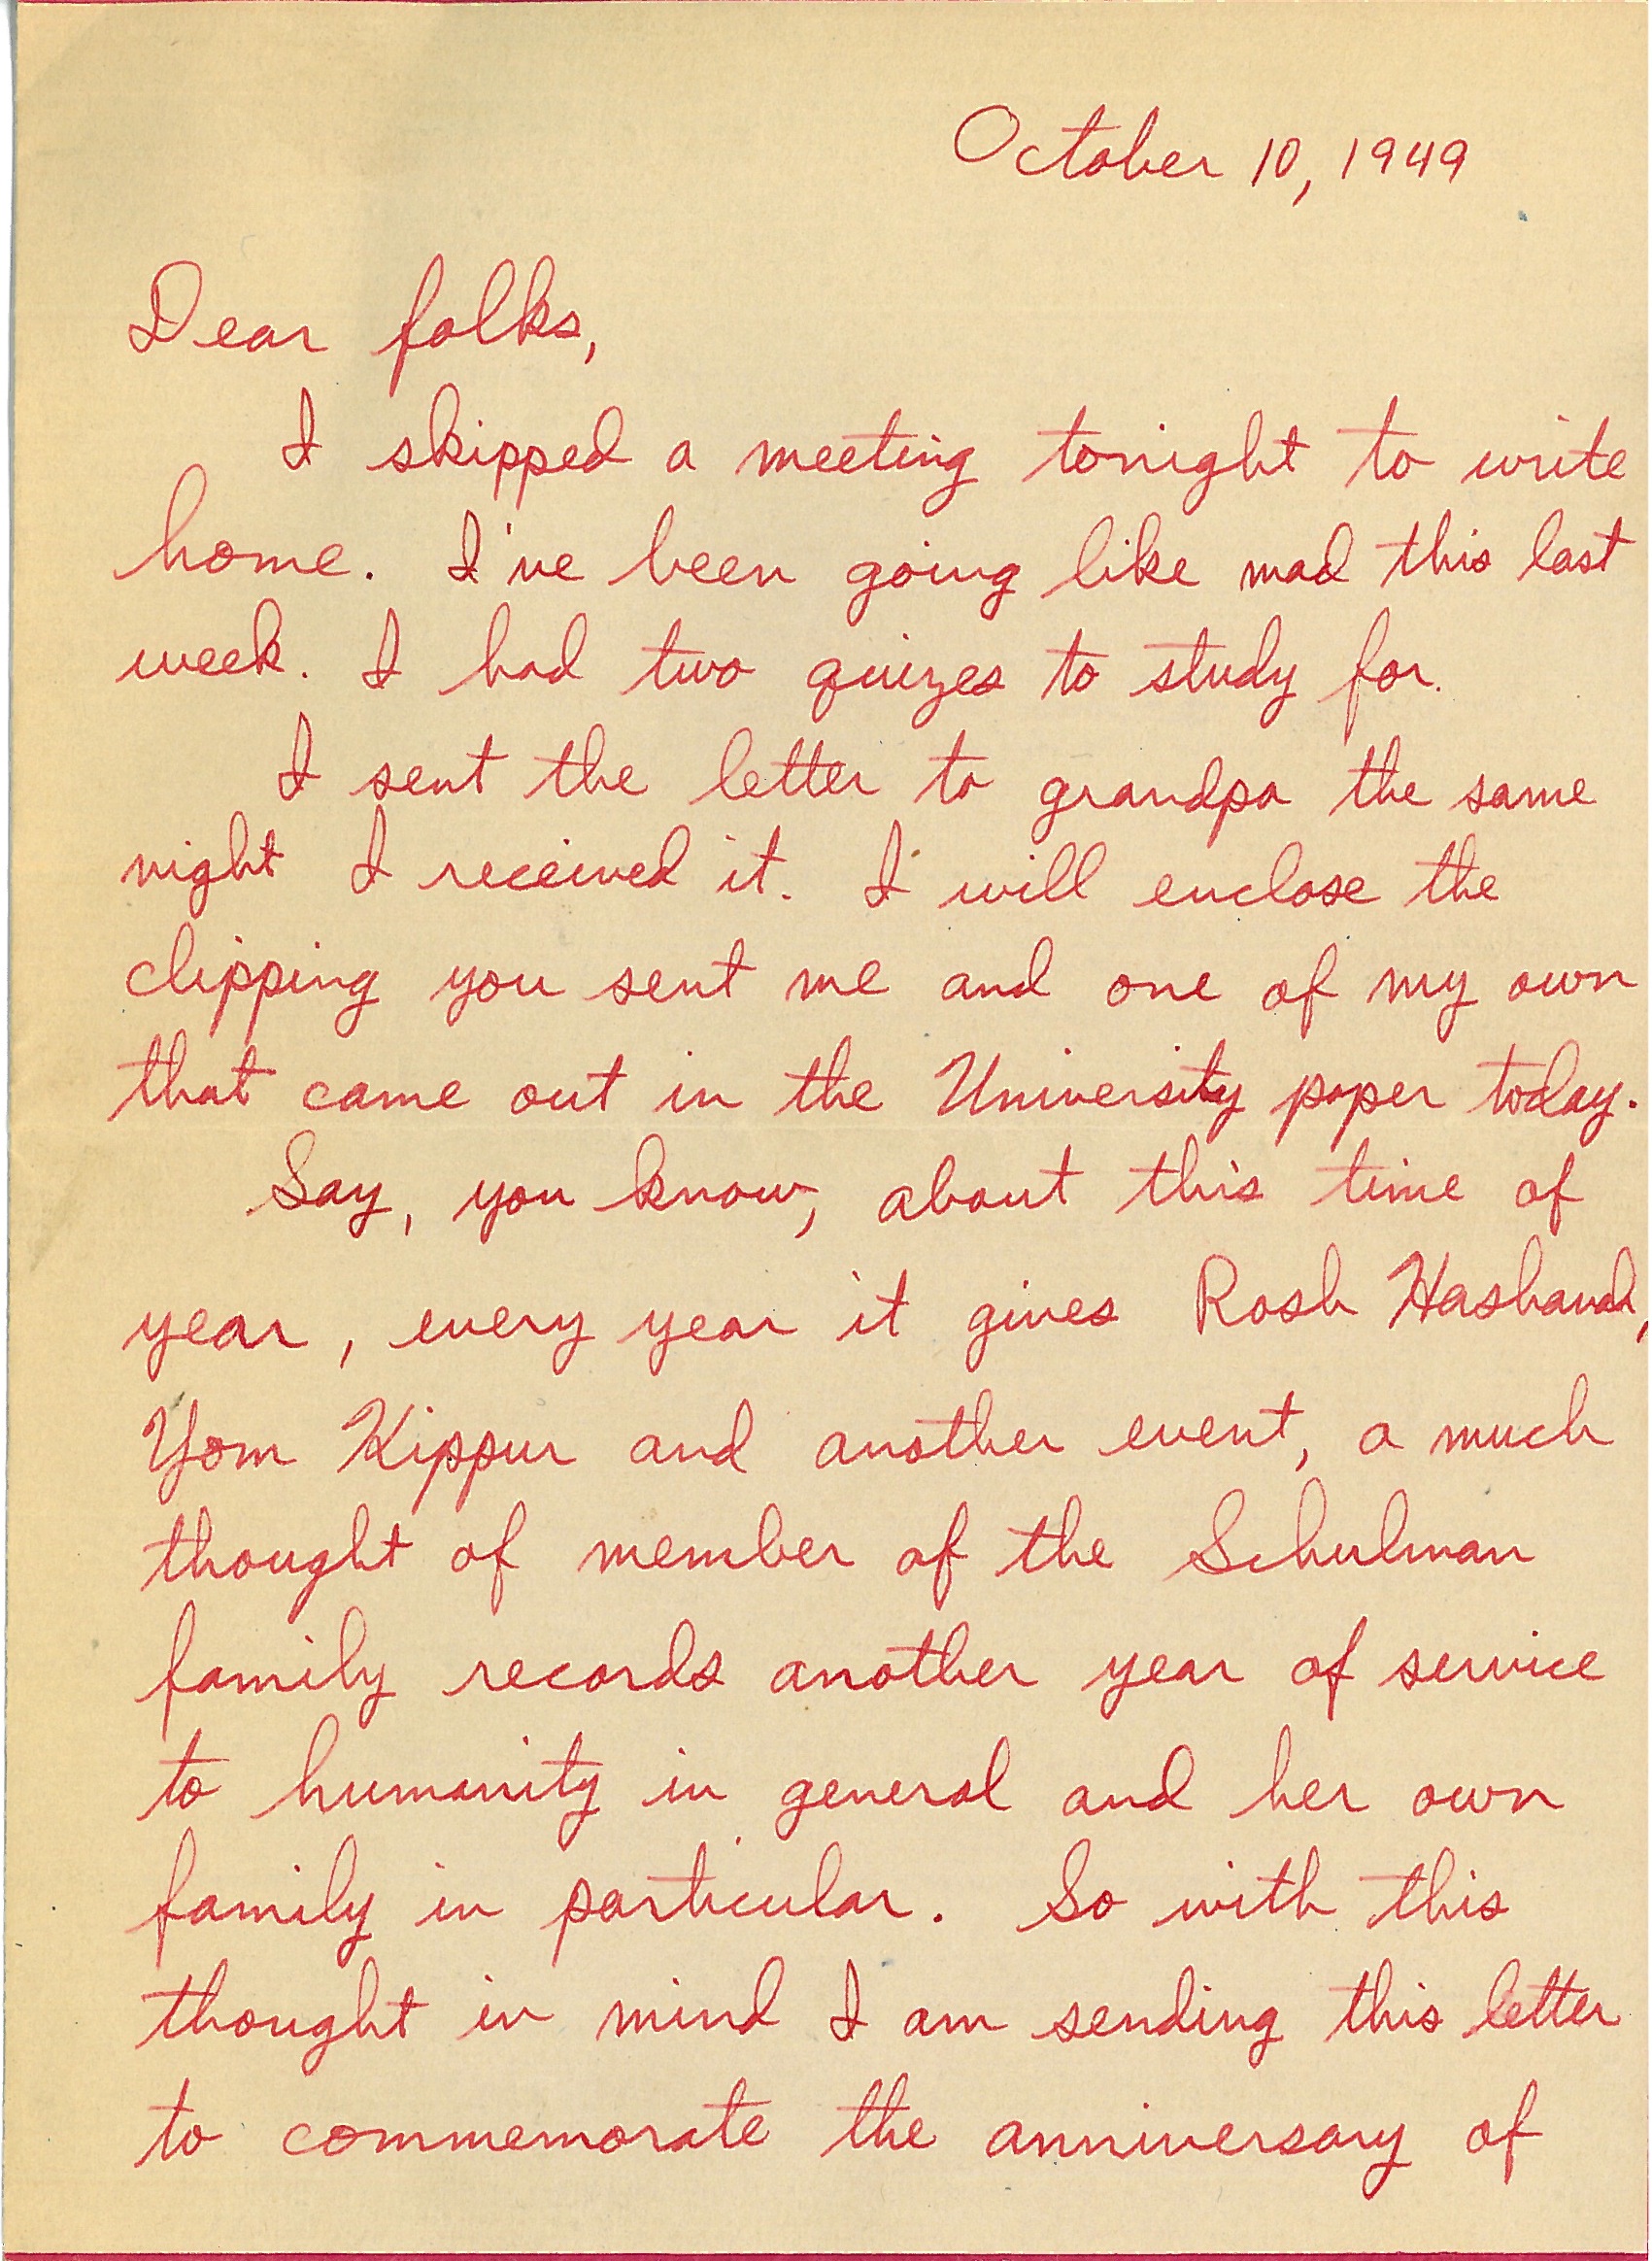 October 10, 1949
Dear folks,
I skipped a meeting tonight to write
home. I've been going like mad this last
week. I had two quizes to study for.
I sent the letter to grandpa the same
night I received it. I will enclose the
clipping you sent me and one of my own
that came out in the University paper today.
Say, you know, about this time of
year, every year it gives Rosh Hashanah,
Yom Kippur and another event, a much
thought of member of the Schulman
family records another year of service
to humanity in general and her own
family in particular. So with this
thought in mind I am sending this letter
to commemorate the anniversary of